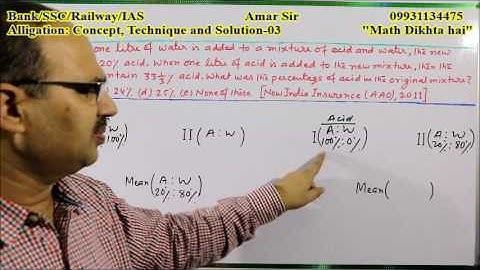 Bank/SSC/Railway/IAS Amar Sir 09931134475
Alligation: Concept, Technique and Solution-03 "Math Dikhta hai"
one litre of water is added to a mixture of acid and water, the new
20% acid. When one litre of acid is added to the new mixture, then the
ntain 33⅓% acid. What was the percentage of acid in the original mixture?
24% (d) 25% (e) None of these [New India Insurance (AAO), 2011]
Acid
W II (A:W) I (A:W II (A:W
100%) 100%:0%) 20%:80%)
Mean (A:W Mean ( )
20%:80%)